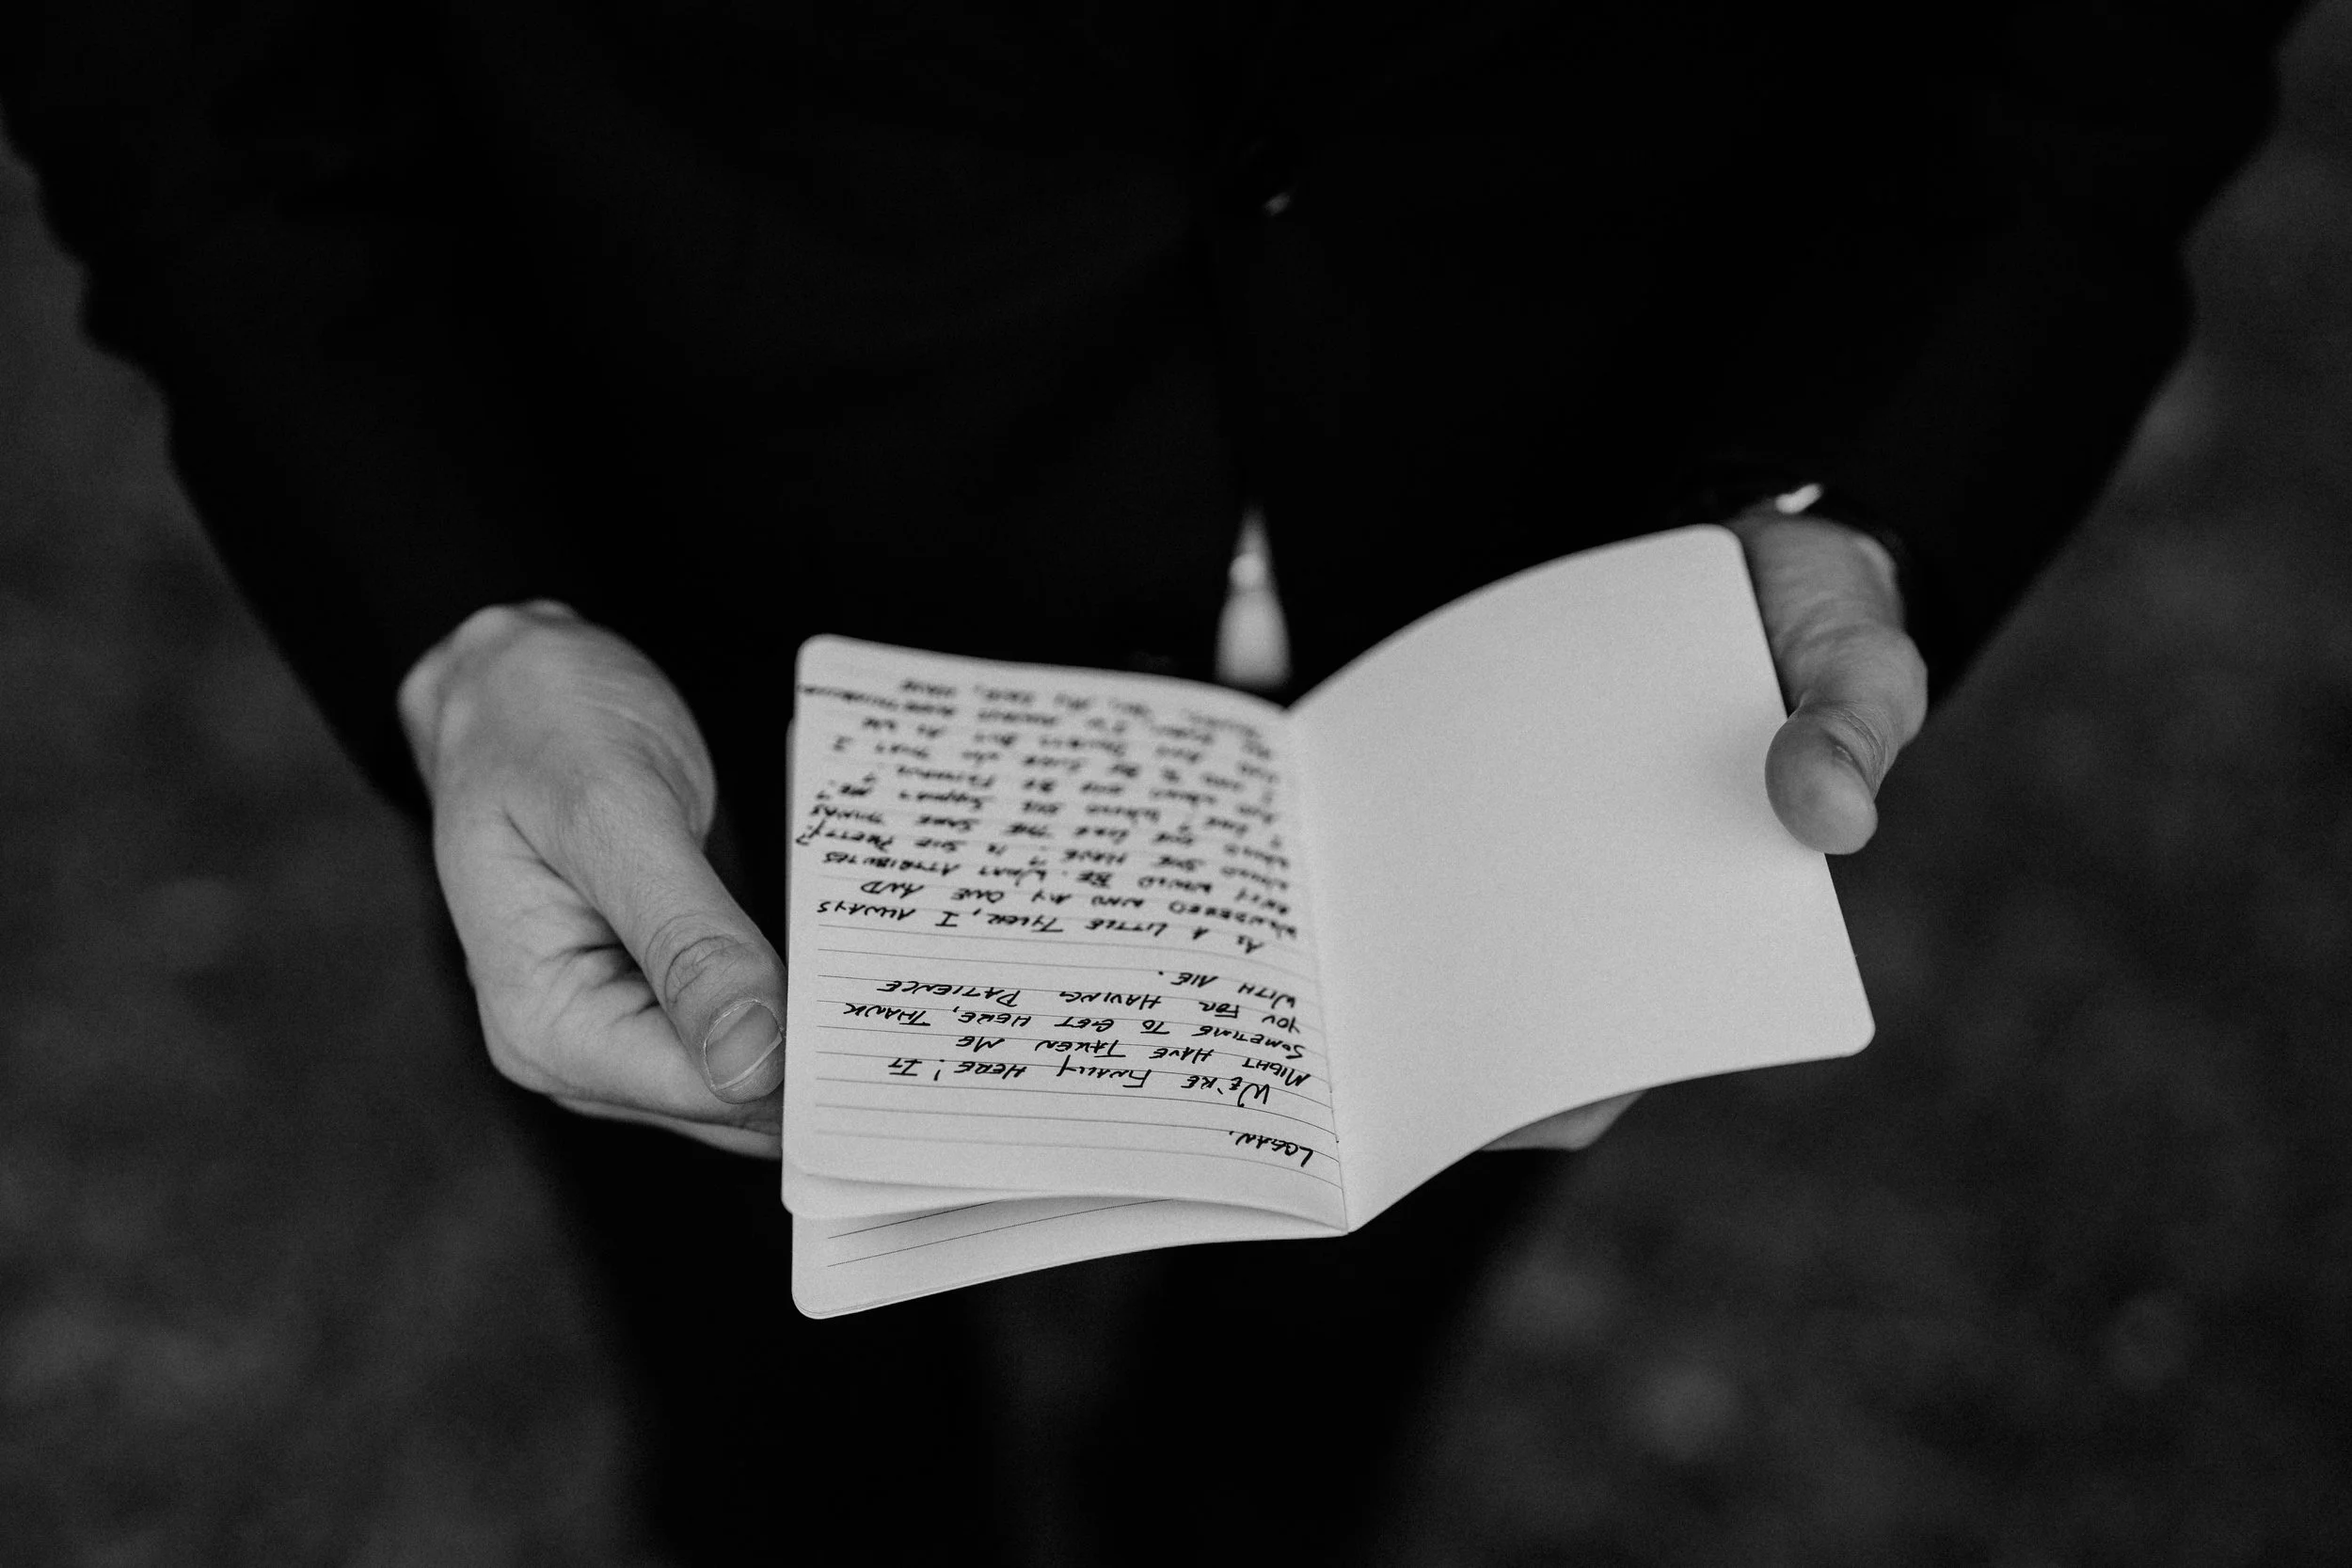 LOGAN,
WE'RE FINALLY HERE! IT
MIGHT HAVE TAKEN ME
SOMETIME TO GET HERE, THANK
YOU FOR HAVING PATIENCE
WITH ME.
AS A LITTLE TYLER, I ALWAYS
WONDERED WHO MY ONE AND
ONLY WOULD BE. WHAT ATTRIBUTES
WOULD SHE HAVE? IS SHE PRETTY?
WOULD SHE LIKE THE SAME THINGS
I LIKE? WOULD SHE SUPPORT ME?